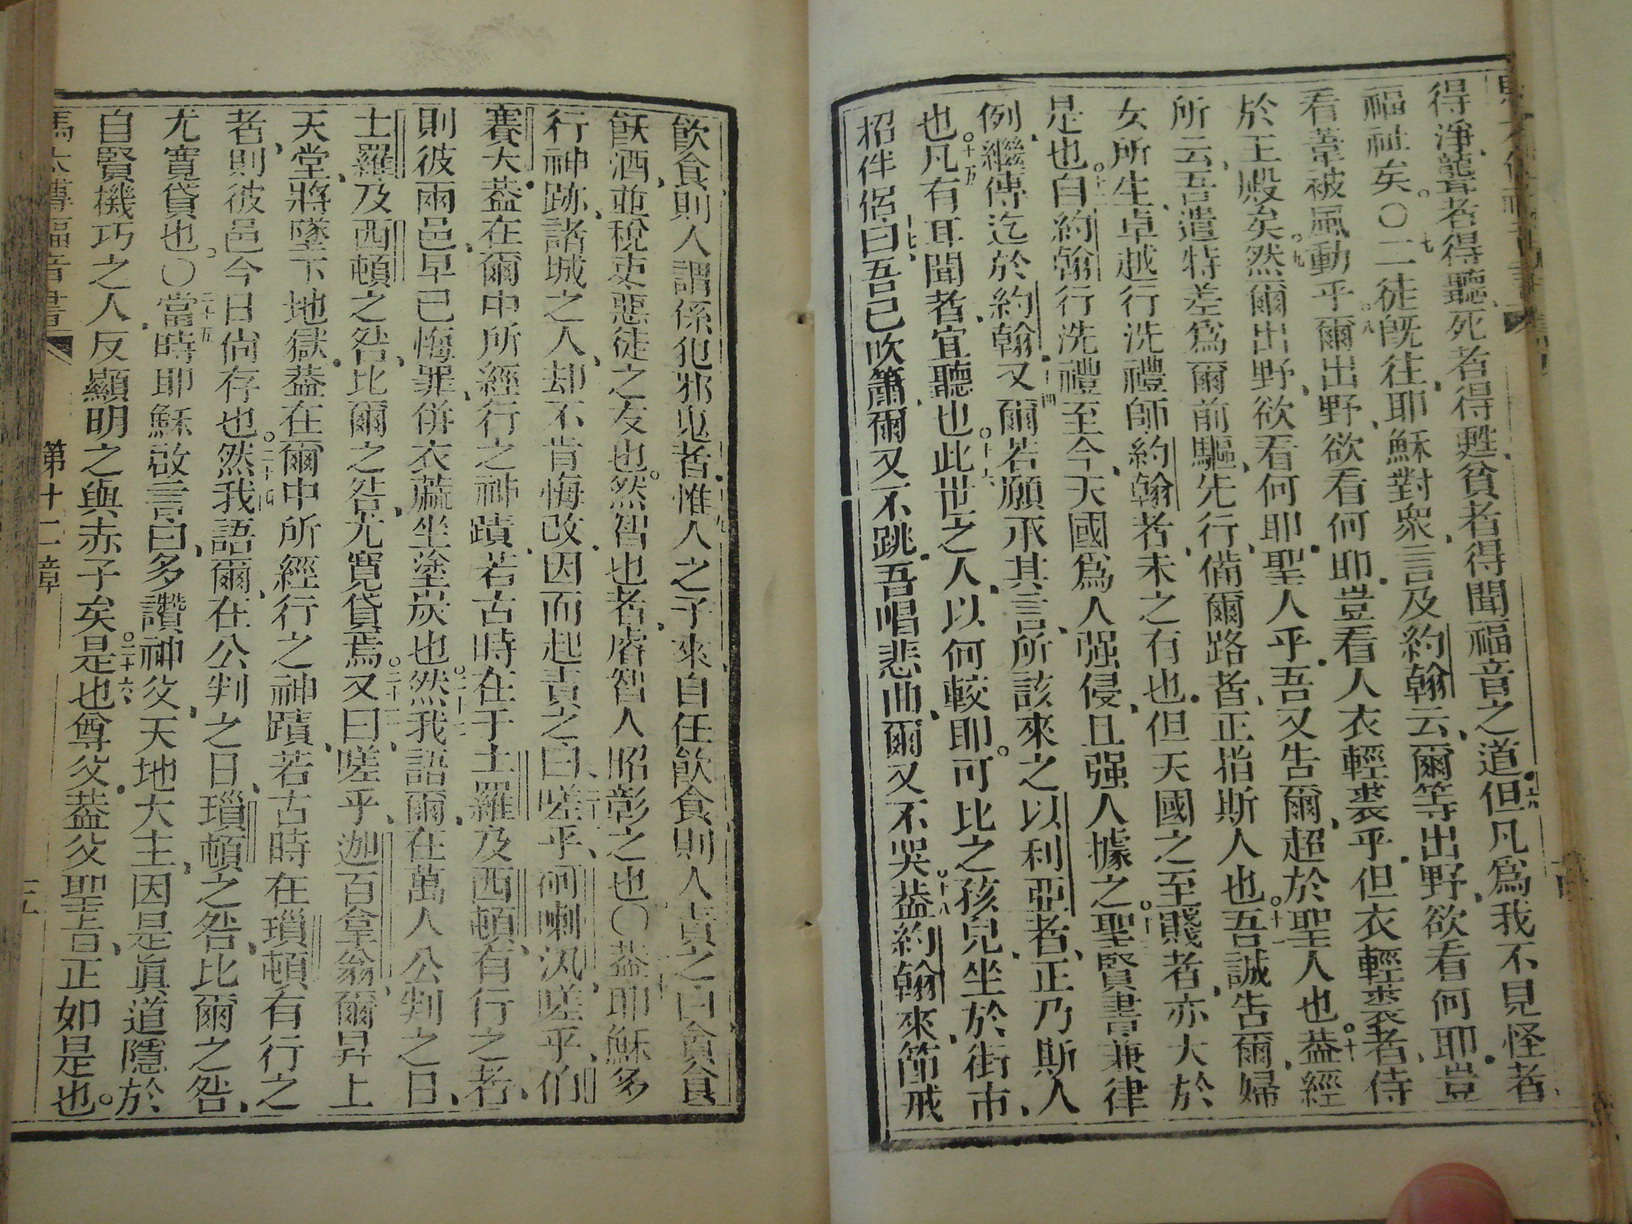 得淨聾者得聽死者得甦貧者得聞福音之道但凡爲我不見怪者
福祉矣〇二徒旣往耶穌對衆言及約翰云爾等出野欲看何耶豈
看葦被風動乎爾出野欲看何耶豈看人衣輕裘乎但衣輕裘者侍
於王殿矣然爾出野欲看何耶聖人乎吾又吿爾超於聖人也葢經
所云吾遣特差爲爾前驅先行備爾路者正指斯人也吾誠吿爾婦
女所生卓越行洗禮師約翰者未之有也但天國之至賤者亦大於
是也自約翰行洗禮至今天國爲人强侵且强人據之聖賢書兼律
例繼傳迄於約翰又爾若願承其言所該來之以利亞者正乃斯人
也凡有耳聞者宜聽也此世之人以何較耶可比之孩兒坐於街市
招伴侶曰吾已吹簫爾又不跳吾唱悲曲爾又不哭葢約翰來節戒
飮食則人謂係犯邪鬼者惟人之子來自任飮食則人責之曰貪食
飫酒並稅吏惡徒之友也然智也者睿智人昭彰之也〇葢耶穌多
行神跡諸城之人却不肯悔改因而起責之曰嗟乎呵喇汛嗟乎伯
賽大葢在爾中所經行之神蹟若古時在于土羅及西頓有行之者
則彼兩邑早已悔罪併衣蔴坐塗炭也然我語爾在萬人公判之日
士羅及西頓之咎比爾之咎尤寬貸焉又曰嗟乎迦百拿翁爾昇上
天堂將墜下地獄葢在爾中所經行之神蹟若古時在瑣頓有行之
者則彼邑今日尙存也然我語爾在公判之日瑣頓之咎比爾之咎
尤寬貸也〇當時耶穌啟言曰多讚神父天地大主因是眞道隱於
自賢機巧之人反顯明之與赤子矣是也尊父葢父聖旨正如是也
馬太傳福音書 第十一章 十五